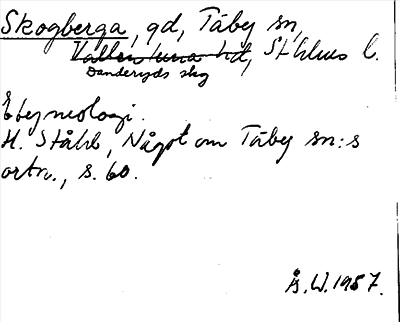 Skogberga, gd, Täby sn,
Vallentuna hd, Sthlms l.
Danderyds skg
Etymologi.
H. Ståhl, Något om Täby sn:s
ortn., s. 60.
Å.W. 1957.